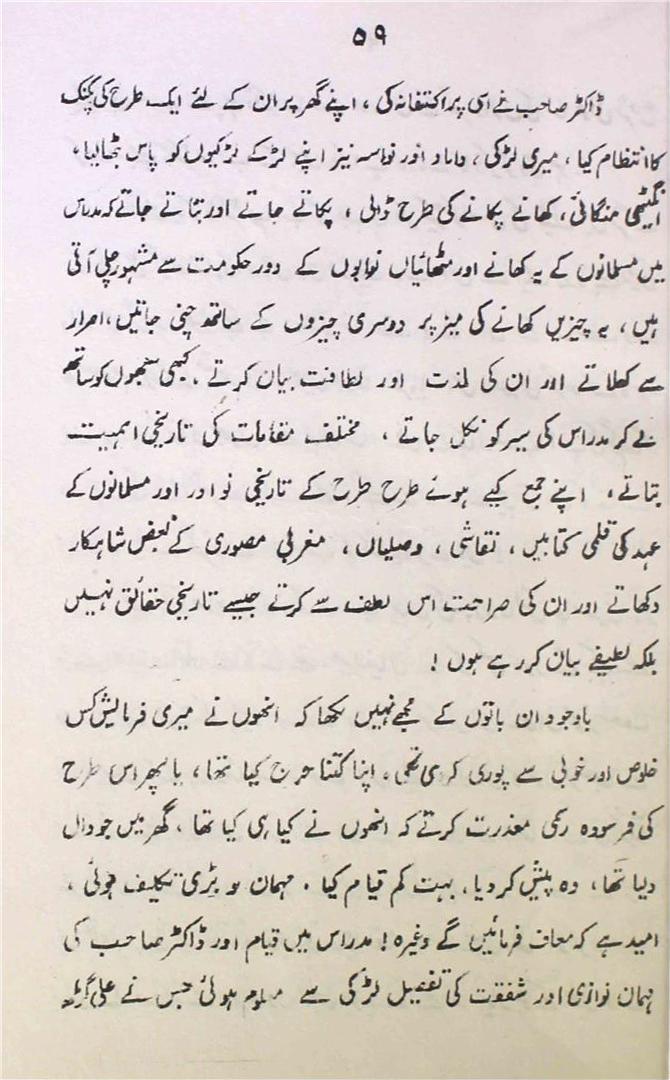 ۵۹
ڈاکٹر صاحب نے اسی پر اکتفا نہ کی ، اپنے گھر پر ان کے لئے ایک طرح کی پکنک
کا انتظام کیا ، میری لڑکی ، داماد اور نواسہ نیز اپنے لڑکے لڑکیوں کو پاس بٹھا لیا ،
انگیٹھی منگائی ، کھانے پکانے کی طرح ڈالی ، پکاتے جاتے اور بتاتے جاتے کہ مدراس
میں مسلمانوں کے یہ کھانے اور مٹھائیاں نوابوں کے دور حکومت سے مشہور چلی آتی
ہیں ، یہ چیزیں کھانے کی میز پر دوسری چیزوں کے ساتھ چنی جاتیں ، اصرار
سے کھلاتے اور ان کی لذت اور لطافت بیان کرتے ۔ کبھی سبھوں کو ساتھ
لے کر مدراس کی سیر کو نکل جاتے ، مختلف مقامات کی تاریخی اہمیت
بتاتے ، اپنے جمع کیے ہوئے طرح طرح کے تاریخی نوادر اور مسلمانوں کے
عہد کی قلمی کتابیں ، نقاشی ، وصلیاں ، مغربی مصوری کے بعض شاہکار
دکھاتے اور ان کی صراحت اس لطف سے کرتے جیسے تاریخی حقائق نہیں
بلکہ لطیفے بیان کر رہے ہوں !
باوجود ان باتوں کے مجھے نہیں لکھا کہ انھوں نے میری فرمایش کس
خلوص اور خوبی سے پوری کر دی تھی ۔ اپنا کتنا حرج کیا تھا ، یا پھر اس طرح
کی فرسودہ رسمی معذرت کرتے کہ انھوں نے کیا ہی کیا تھا ، گھر میں جو دال
دلیا تھا ، وہ پیش کر دیا ، بہت کم قیام کیا ۔ مہمان کو بڑی تکلیف ہوئی ،
امید ہے کہ معاف فرمائیں گے وغیرہ ! مدراس میں قیام اور ڈاکٹر صاحب کی
مہمان نوازی اور شفقت کی تفصیل لڑکی سے معلوم ہوئی جس نے علی گڑھ